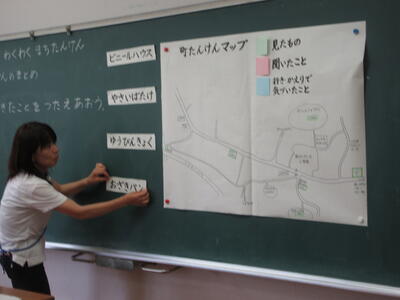 わくわく まちたんけん
んのまとめ
きたことをつたえあおう。
ビニールハウス
やさいばたけ
ゆうびんきょく
おざきパン
町たんけんマップ
見たもの
聞いたこと
行き・かえりで
気づいたこと